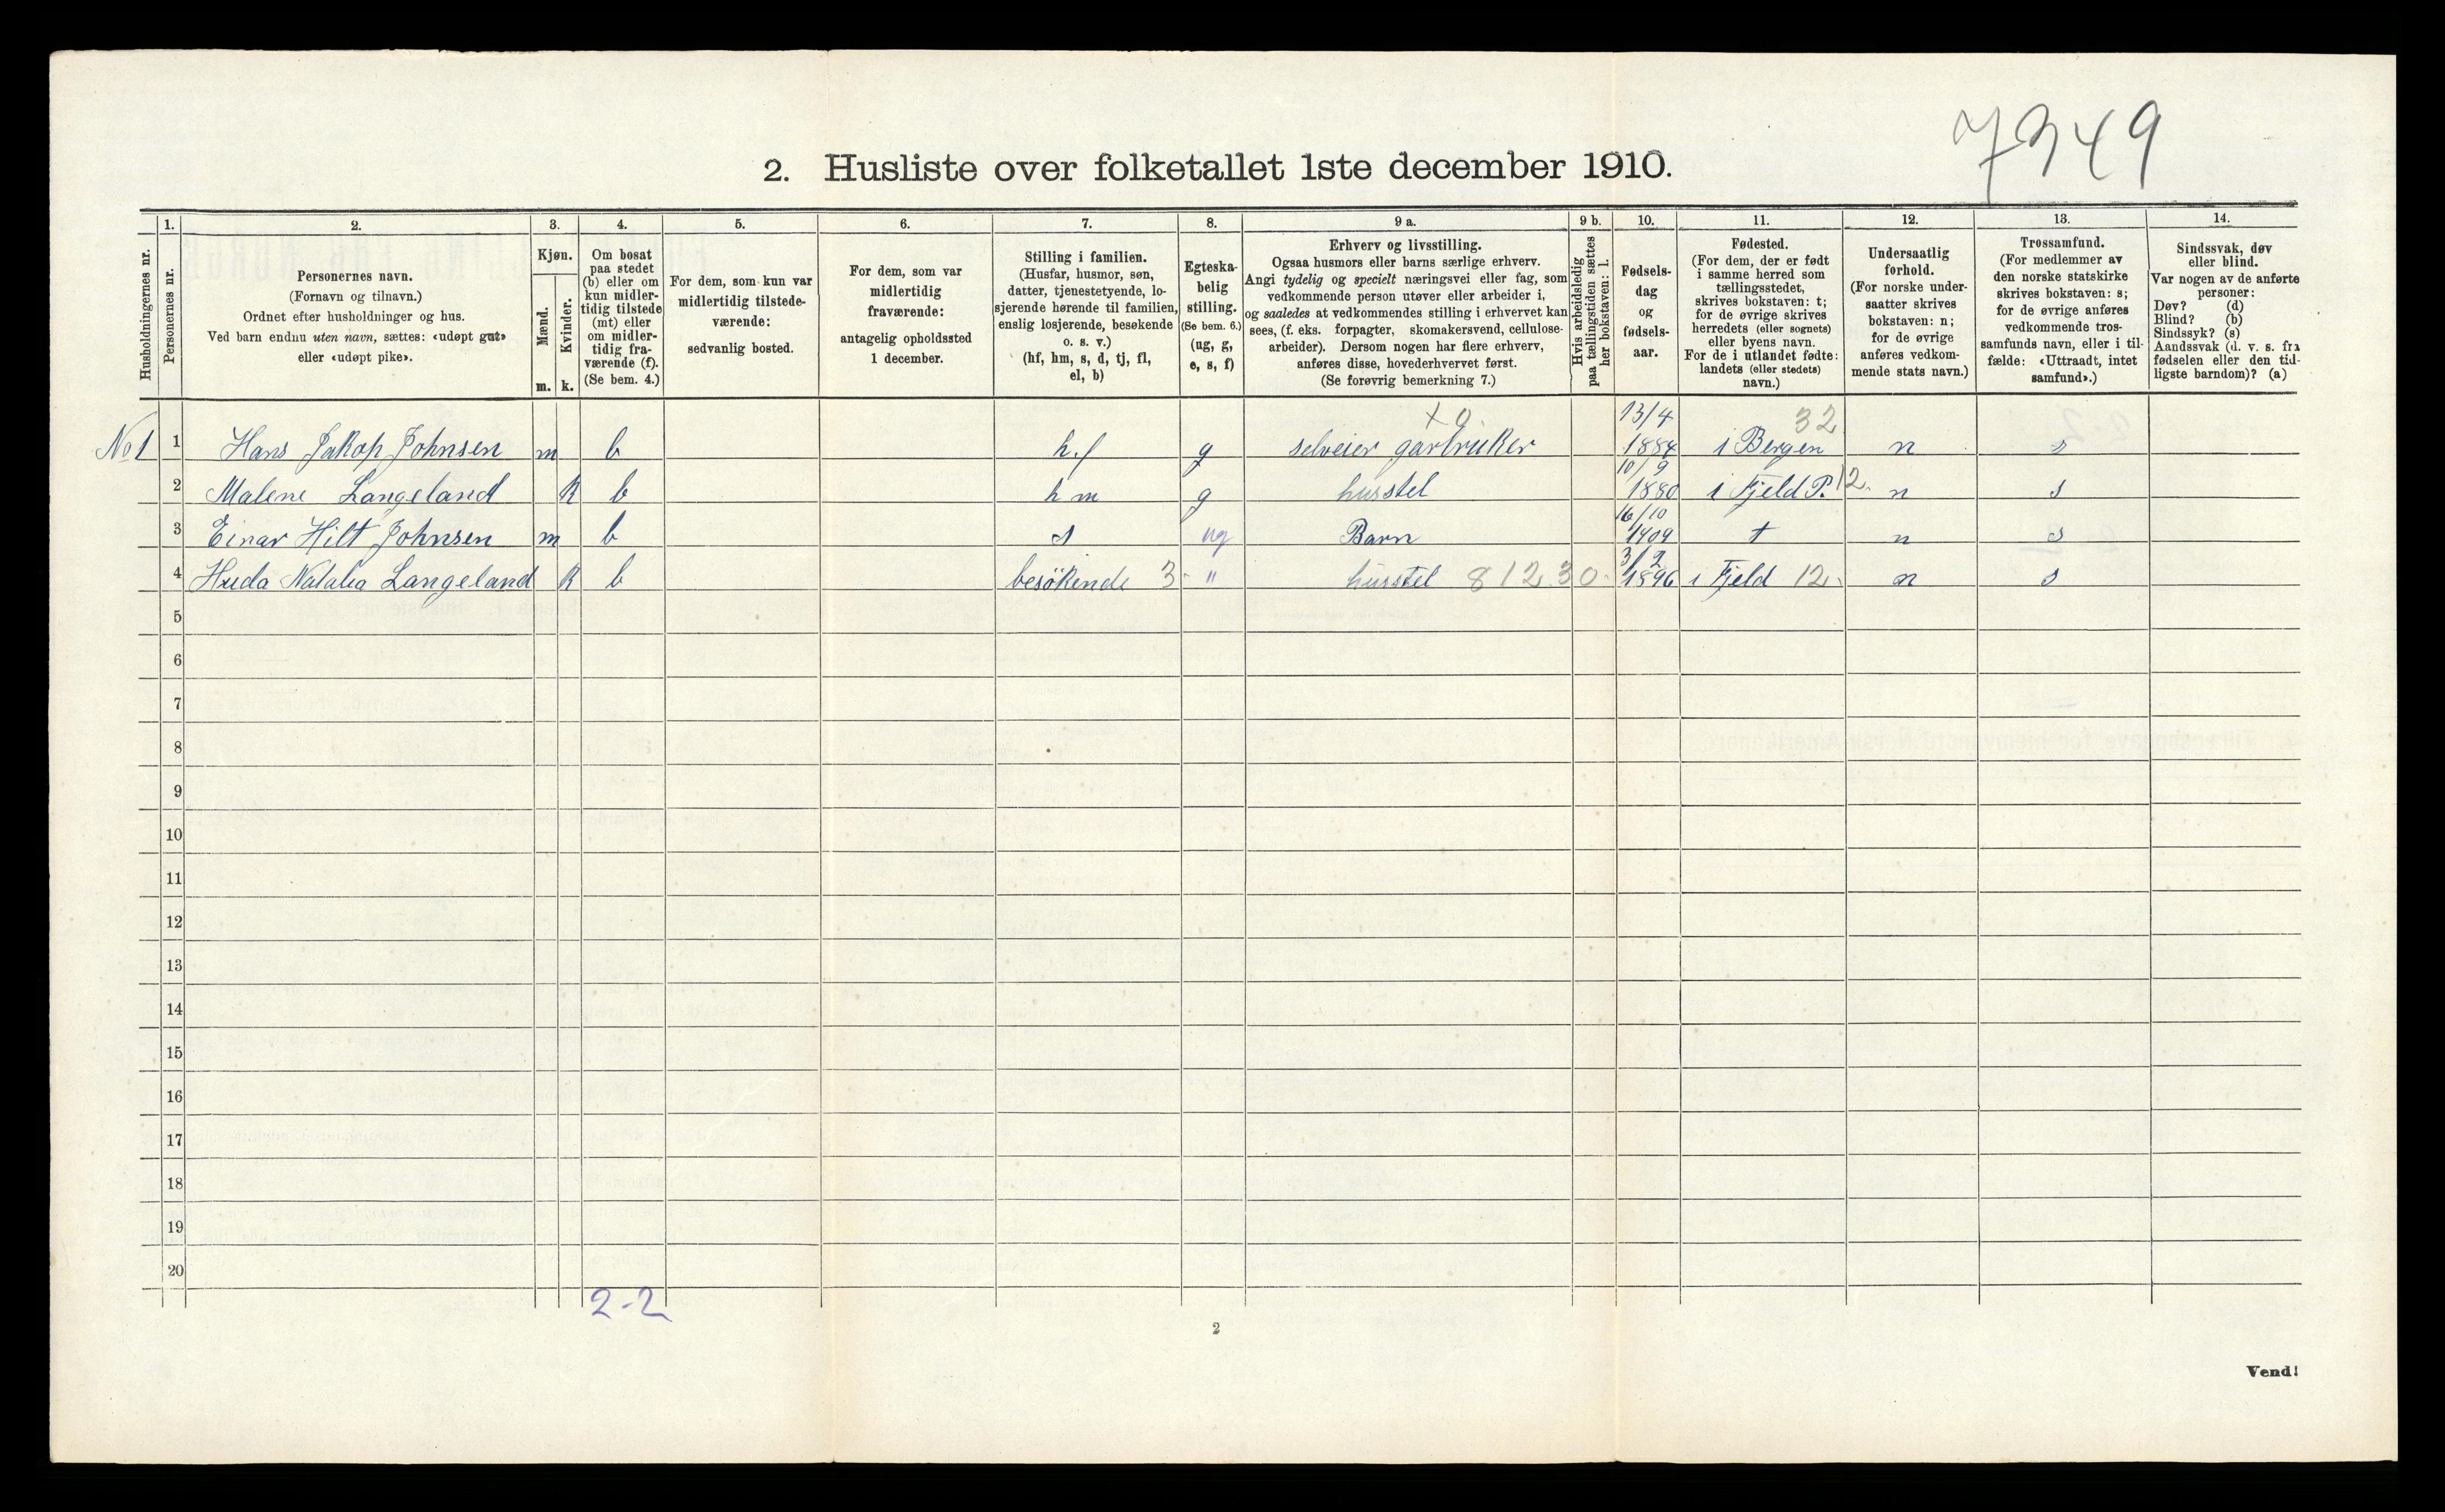 7349
2. Husliste over folketallet 1ste december 1910.
1. 2. 3. 4. 5. 6. 7. 8. 9 a. 9 b. 10. 11. 12. 13. 14.
Husholdningernes nr.
Personernes nr.
Personernes navn.
(Fornavn og tilnavn.)
Ordnet efter husholdninger og hus.
Ved barn endnu uten navn, sættes: «udøpt gut»
eller «udøpt pike».
Kjøn.
Mænd.
Kvinder.
m. k.
Om bosat
paa stedet
(b) eller om
kun midler-
tidig tilstede
(mt) eller
om midler-
tidig fra-
værende (f).
(Se bem. 4.)
For dem, som kun var
midlertidig tilstede-
værende:
sedvanlig bosted.
For dem, som var
midlertidig
fraværende:
antagelig opholdssted
1 december.
Stilling i familien.
(Husfar, husmor, søn,
datter, tjenestetyende, lo-
sjerende hørende til familien,
enslig losjerende, besøkende
o. s. v.)
(hf, hm, s, d, tj, fl,
el, b)
Egteska-
belig
stilling.
(Se bem. 6.)
(ug, g,
e, s, f)
Erhverv og livsstilling.
Ogsaa husmors eller barns særlige erhverv.
Angi tydelig og specielt næringsvei eller fag, som
vedkommende person utøver eller arbeider i,
og saaledes at vedkommendes stilling i erhvervet kan
sees, (f. eks. forpagter, skomakersvend, cellulose-
arbeider). Dersom nogen har flere erhverv,
anføres disse, hovederhvervet først.
(Se forøvrig bemerkning 7.)
Hvis arbeidsledig
paa tællingstiden sættes
her bokstaven: l.
Fødsels-
dag
og
fødsels-
aar.
Fødested.
(For dem, der er født
i samme herred som
tællingsstedet,
skrives bokstaven: t;
for de øvrige skrives
herredets (eller sognets)
eller byens navn.
For de i utlandet fødte:
landets (eller stedets)
navn.)
Undersaatlig
forhold.
(For norske under-
saatter skrives
bokstaven: n;
for de øvrige
anføres vedkom-
mende stats navn.)
Trossamfund.
(For medlemmer av
den norske statskirke
skrives bokstaven: s;
for de øvrige anføres
vedkommende tros-
samfunds navn, eller i til-
fælde: «Uttraadt, intet
samfund».)
Sindssvak, døv
eller blind.
Var nogen av de anførte
personer:
Døv? (d)
Blind? (b)
Sindssyk? (s)
Aandssvak (d. v. s. fra
fødselen eller den tid-
ligste barndom)? (a)
13/4 32
No 1 1 Hans Jakop Johnsen m b h.f g selveier garbruker 1884 i Bergen n s
10/9
2 Malene Langeland k b h m g husstel 1880 i Fjeld P. 12. n s
16/10
3 Einar Hilt Johnsen m b s ug Barn 1909 t n s
3/2
4 Huda Natalia Langeland k b besökende 3 " husstel 812.30 1896 i Fjeld 12. n s
5
6
7
8
9
10
11
12
13
14
15
16
17
18
19
20
2-2
2
Vend!